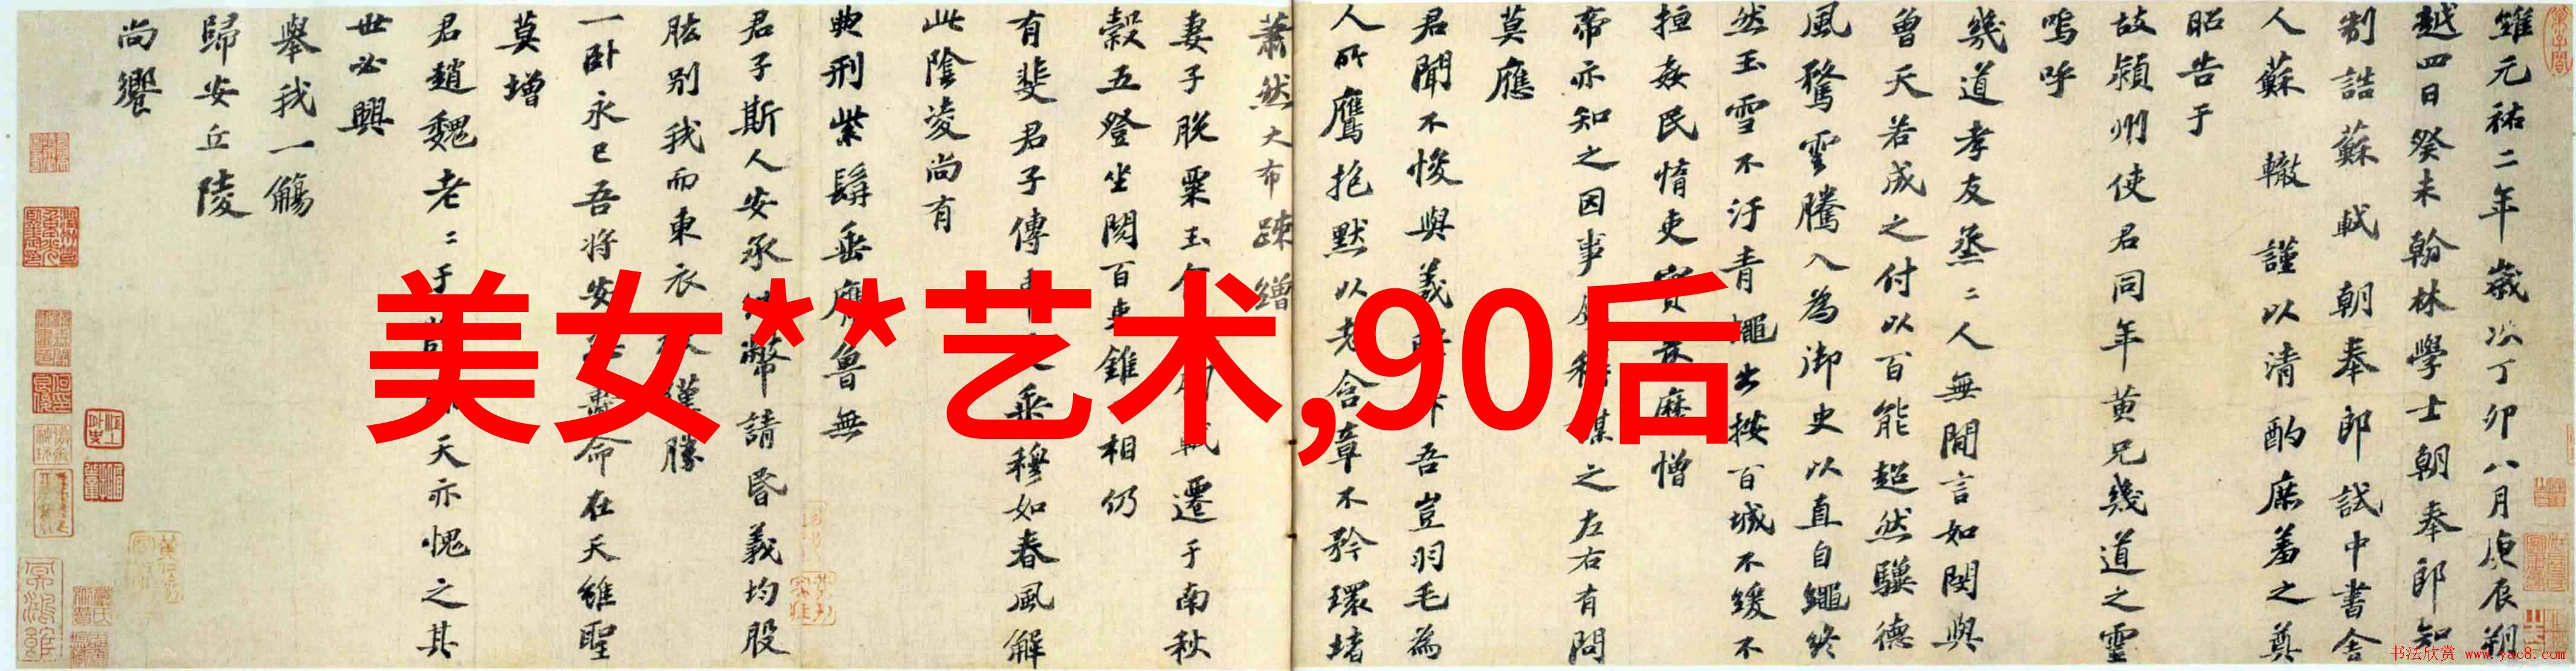 維元祐二年歲次丁卯八月庚辰朔
越四日癸未翰林學士朝奉郎知
制誥蘇軾朝奉郎試中書舍
人蘇轍謹以清酌庶羞之奠
昭告于
故潁州使君同年黃兄幾道之靈
嗚呼
幾道孝友烝〻人無閒言如閔與
曾天若成之付以百能超然驥德
風騖雲騰入為御史以直自繩終
然玉雪不汙青蠅出按百城不緩不
擅姦民惰吏實畏靡憎
帝亦知之因事屢稱謀之左右有問
莫應
君聞不悛與義降升吾豈羽毛為
人所鷹抱默以老含章不矜環堵
蕭然大布疎繒
妻子脫粟玉食
遷于南秋
穀五登坐閱百吏錐
相仍
有斐君子傳車是乘穆如春風解
此陰凌尚有
典刑紫髯垂膺魯無
君子斯人安承納幣請昏義均股
肱別我而東衣袂僅勝
一卧永已吾將安
壽命在天雖聖
莫增
君趙魏老〻于
天亦愧之其
世必興
舉我一觴
歸安丘陵
尚饗
美女**艺术,90后
书法欣赏 www.yac8.com